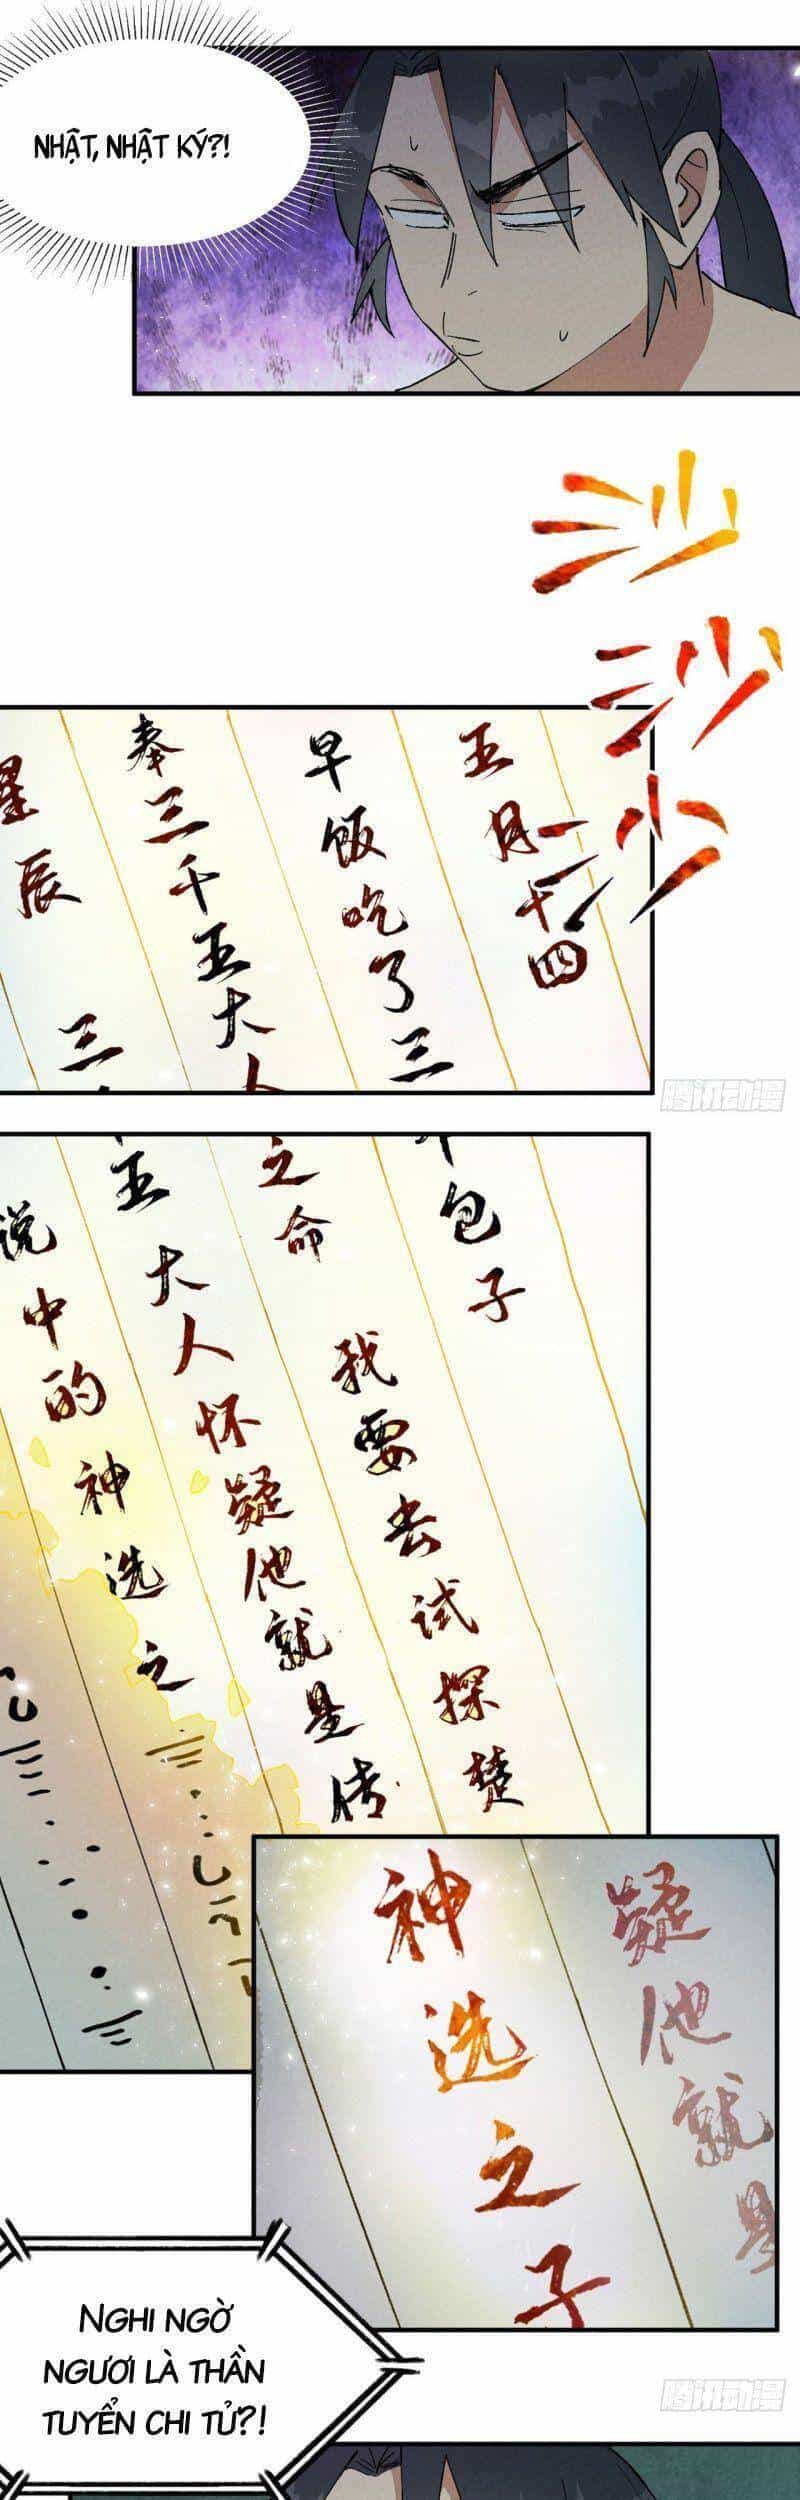 NHẬT, NHẬT KÝ?!
沙
沙
沙
五月二十四
早饭吃了三
奉三千五大人
星辰
三
腾讯动漫
包子
我要去试探楚
之命
五大人怀疑他就是传
说中的神选之
疑他就是
神选之子
NGHI NGỜ
NGƯƠI LÀ THẦN
TUYỂN CHI TỬ?!
腾讯动漫